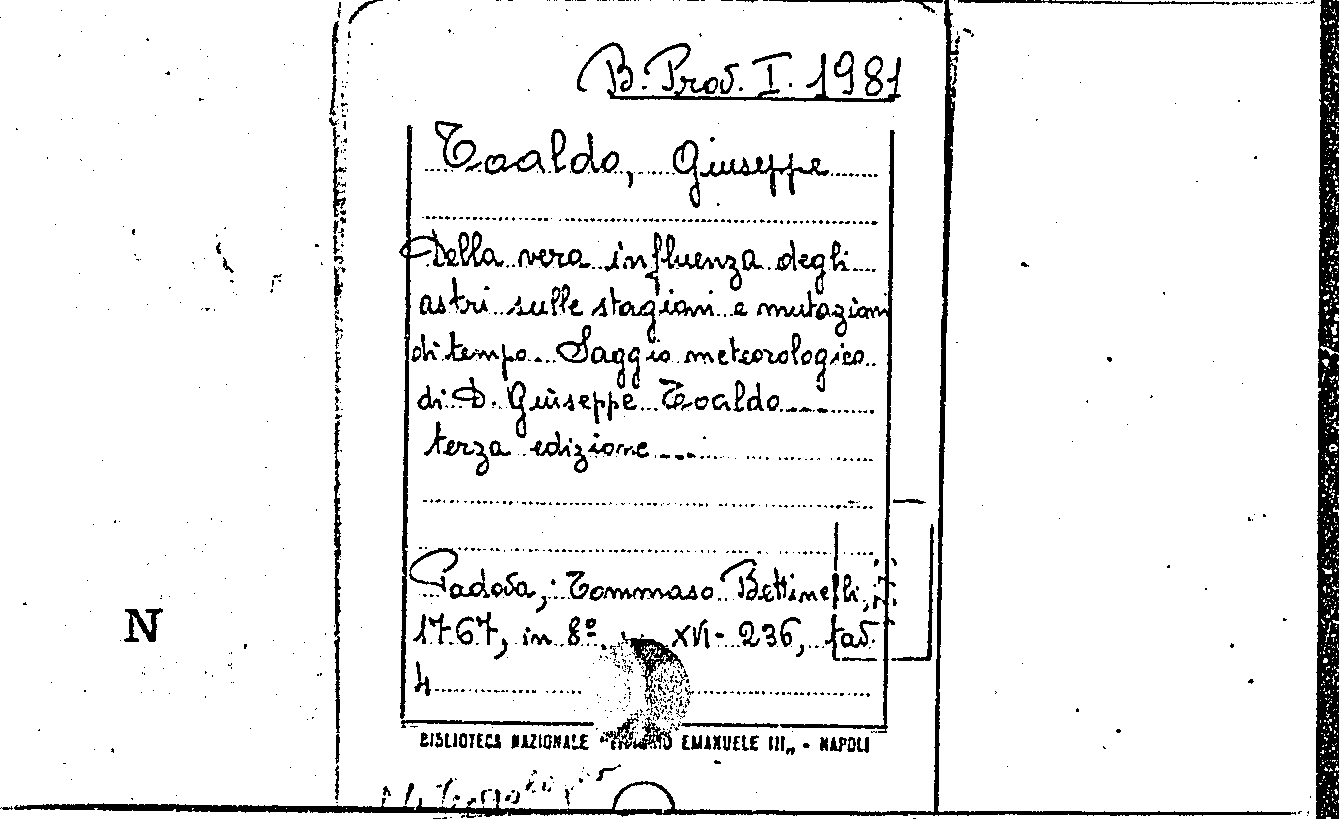 B. Prov. I. 1981
Toaldo, Giuseppe
Della vera influenza degli
astri sulle stagioni e mutazioni
di tempo. Saggio meteorologico
di D. Giuseppe Toaldo....
terza edizione....
Padova, Tommaso Bettinelli,
1767, in 8º XVI-236, tav.
4
N
BIBLIOTECA NAZIONALE "VITTORIO EMANUELE III„ - NAPOLI